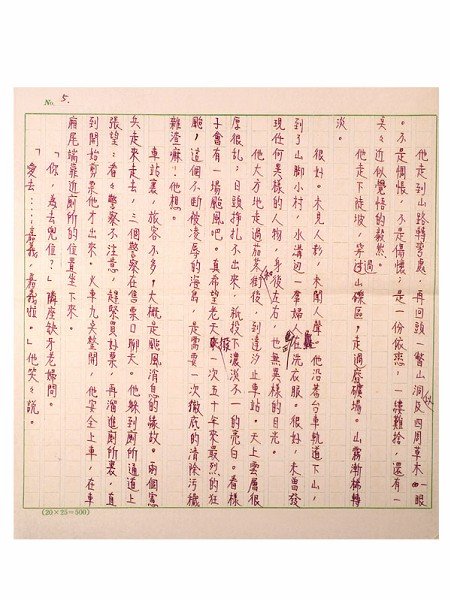 No. 5.
他走到山路轉彎處,再回頭一瞥山洞及四周草木一眼
。不是惆悵,不是傷懷,是一份依戀,一縷難捨,還有一
天々近似覺悟的歡然。
他走下徒坡,穿過山礫區,走過廢礦場。山霧漸稀轉
淡。
很好。未見人影,未聞人聲。他沿著台車軌道下山,
到了山腳小村,水溝邊一羣婦人在洗衣服。很好,未曾發
現任何異樣的人物,身後左右,也無異樣的目光。
他大方地走過茄苳街後,到達汐止車站。天上雲層很
厚很亂;日頭掙扎不出來,祇投下濃淡不一的亮白。看樣
子會有一場颱風吧。真希望老天報一次五十年來最烈的狂
颱,這個不斷被凌辱的海島,是需要一次徹底的清除污穢
雜渣癬!他想。
車站裏,旅客不多,大概是颱風消息的緣故。兩個憲
兵走來走去,三個警察在售票口聊天。他躲到廁所通道上
張望;看々警察不注意,趕緊買好票,再溜進廁所裏,直
到開始剪票他才出來。火車九点整開,他安全上車,在車
廂尾端靠近廁所的位置坐下來。
「你,為去兜位?」隣座缺牙老婦問。
「愛去……嘉義,嘉義啦。」他笑々說。
(20×25=500)